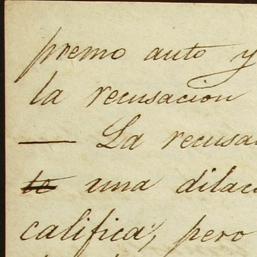 premo auto y
la recusacion
— La recusa
te una dilac
califica, pero